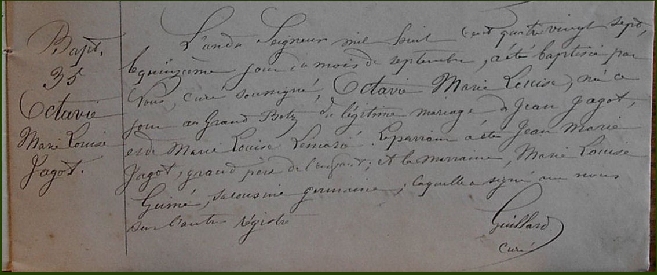 Bapt.
35
Octavie
Marie Louise
Jagot.
L'an du Seigneur mil huit cent quatre vingt sept,
le quinzième jour du mois de septembre, a été baptisée par
Nous, curé soussigné, Octavie Marie Louise, née ce
jour au Grand du légitime mariage de Jean Jagot,
et de Marie Louise Lemasé. Le parrain a été Jean Marie
Jagot, grand père de l'enfant; et la marraine, Marie Louise
Gumé, sa cousine germaine, laquelle a signé avec nous
sur l'autre registre
Guillard
curé